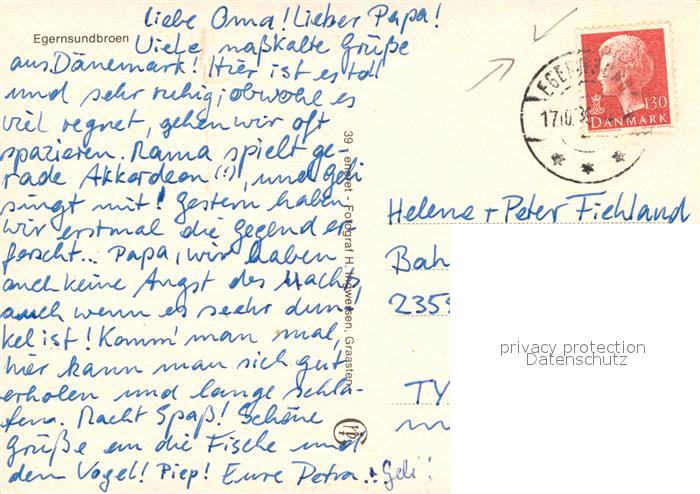 liebe Oma! Lieber Papa!
Egernsundbroen
Viele naßkalte Grüße
aus Dänemark! Hier ist es toll
und sehr ruhig; obwohl es
viel regnet, gehen wir oft
spazieren. Mama spielt ge-
rade Akkordeon (!), und Geli
singt mit! Gestern haben
wir erstmal die Gegend er
forscht... Papa, wir haben
auch keine Angst des Nachts,
auch wenn es seehr dun
kel ist! Komm' man mal,
hier kann man sich gut
erholen und lange schla-
fen. Macht Spaß! Schöne
Grüße an die Fische und
den Vogel! Piep! Eure Petra + Geli!
Fotograf H. Ingwersen, Graasten
17.10.
130
DANMARK
Helene + Peter Fiehland
Bah
235
TY
privacy protection
Datenschutz